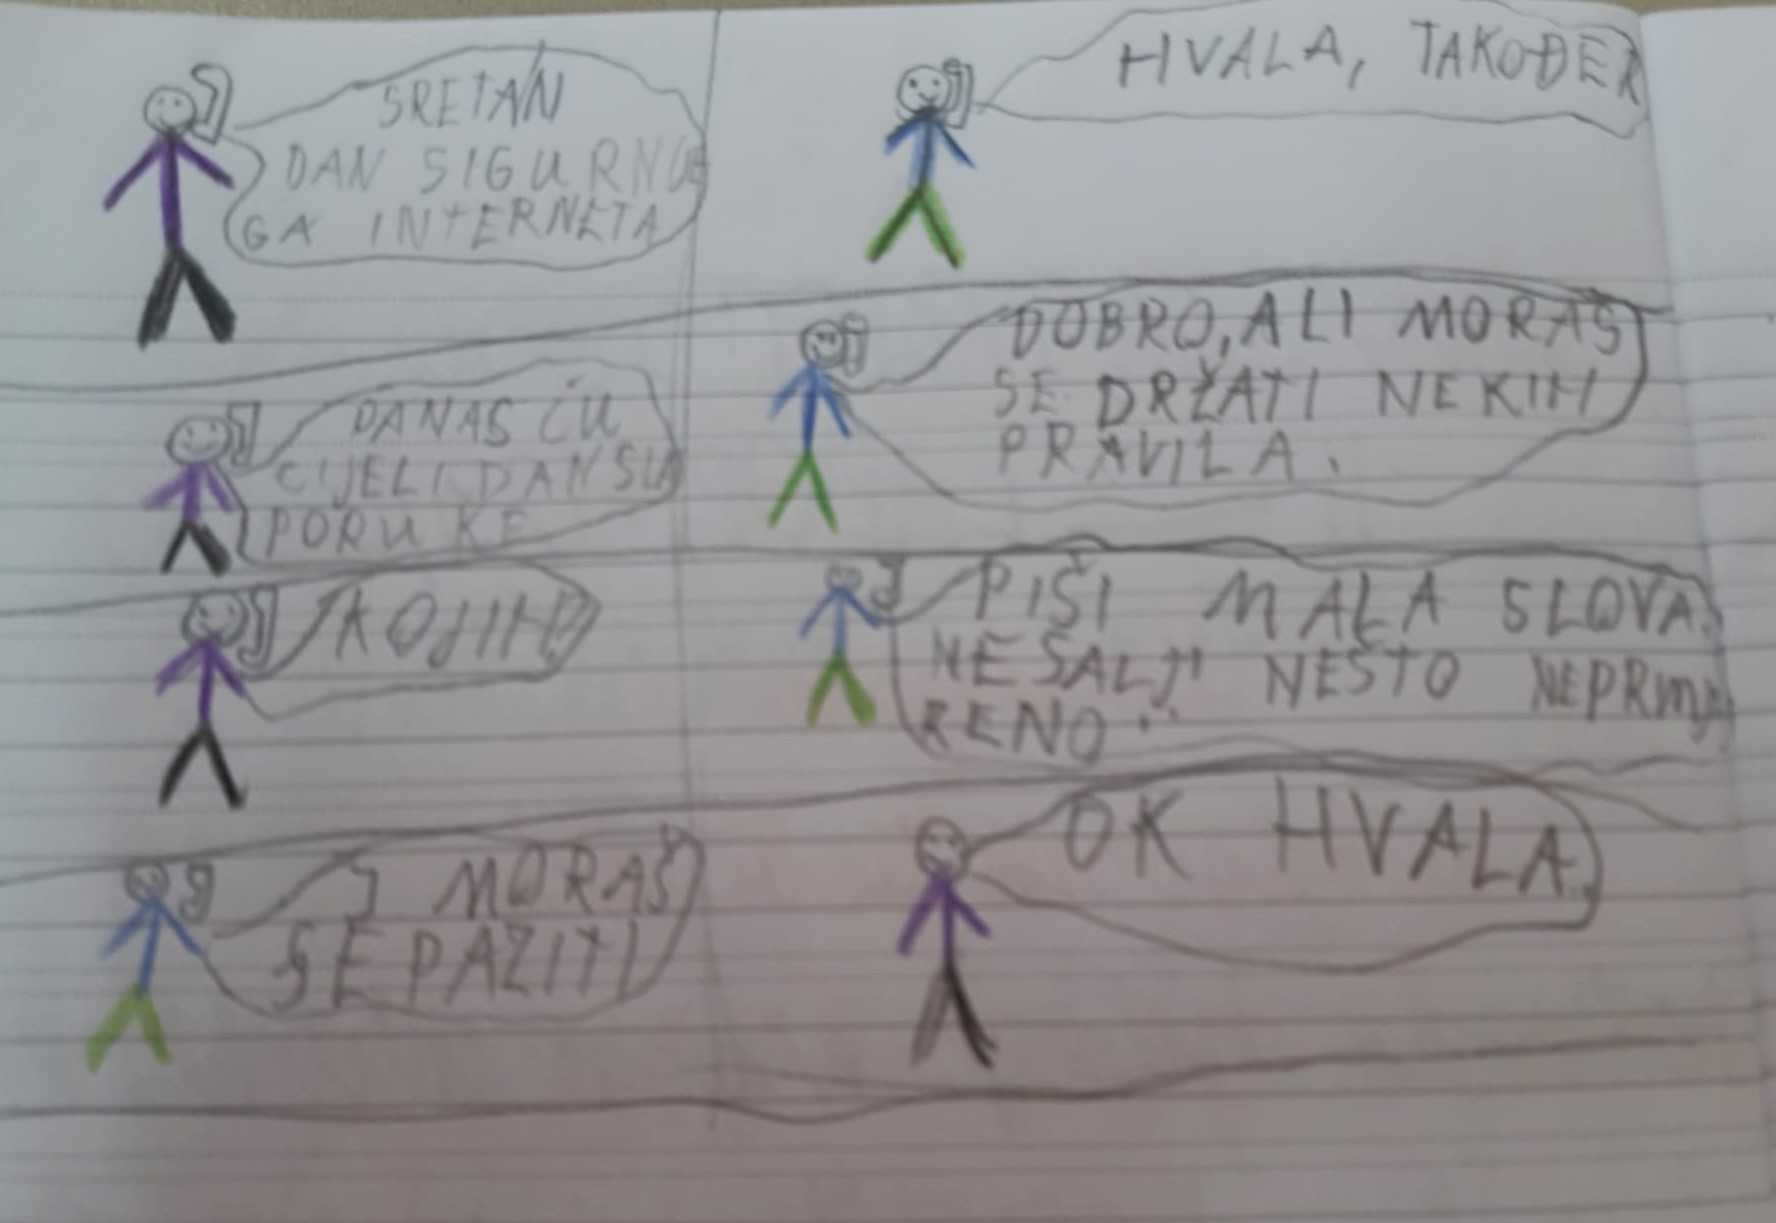 SRETAN
DAN SIGURNO
GA INTERNETA
HVALA, TAKOĐER
DANAS ĆU
CIJELI DAN SLA
PORUKE
DOBRO, ALI MORAŠ
SE DRŽATI NEKIH
PRAVILA.
KOJIH?
PIŠI MALA SLOVA.
NE ŠALJI NEŠTO NEPRIMJE
RENO.
I MORAŠ
SE PAZITI
OK HVALA.